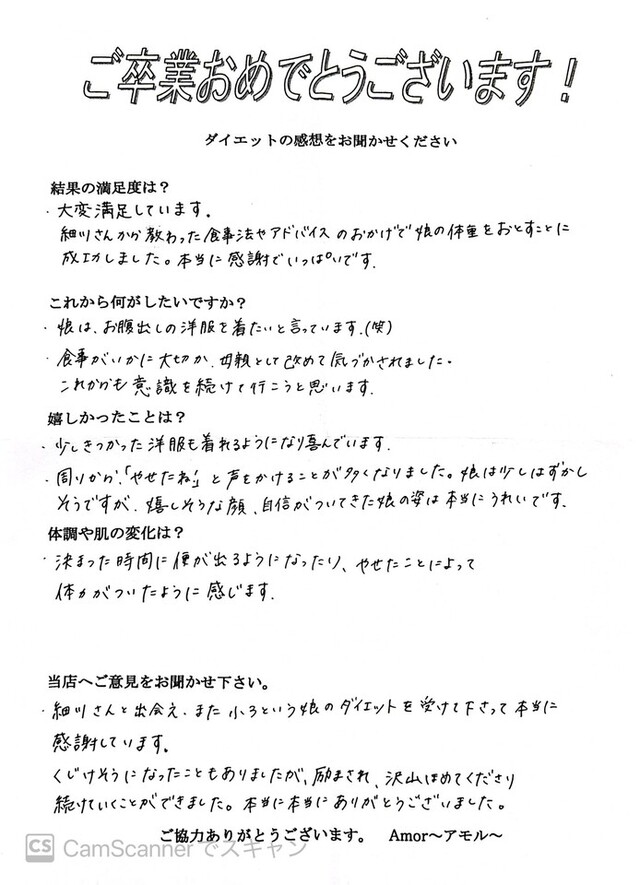 ご卒業おめでとうございます!
ダイエットの感想をお聞かせください
結果の満足度は?
・大変満足しています。
細川さんから教わった食事法やアドバイスのおかげで娘の体重をおとすことに
成功しました。本当に感謝でいっぱいです。
これから何がしたいですか?
・娘は、お腹出しの洋服を着たいと言っています。(笑)
・食事がいかに大切か、母親として改めて気づかされました。
これからも意識を続けて行こうと思います。
嬉しかったことは?
・少しきつかった洋服も着れるようになり喜んでいます。
・周りから、「やせたね!」と声をかけることが多くなりました。娘は少しはずかし
そうですが、嬉しそうな顔、自信がついてきた娘の姿は本当にうれいです。
体調や肌の変化は?
・決まった時間に便が出るようになったり、やせたことによって
体力がついたように感じます。
当店へご意見をお聞かせ下さい。
・細川さんと出会え、また小3という娘のダイエットを受けて下さって本当に
感謝しています。
くじけそうになったこともありましたが、励まされ、沢山ほめてくださり
続けていくことができました。本当に本当にありがとうございました。
ご協力ありがとうございます。 Amor~アモル~
CS CamScannerでスキャン